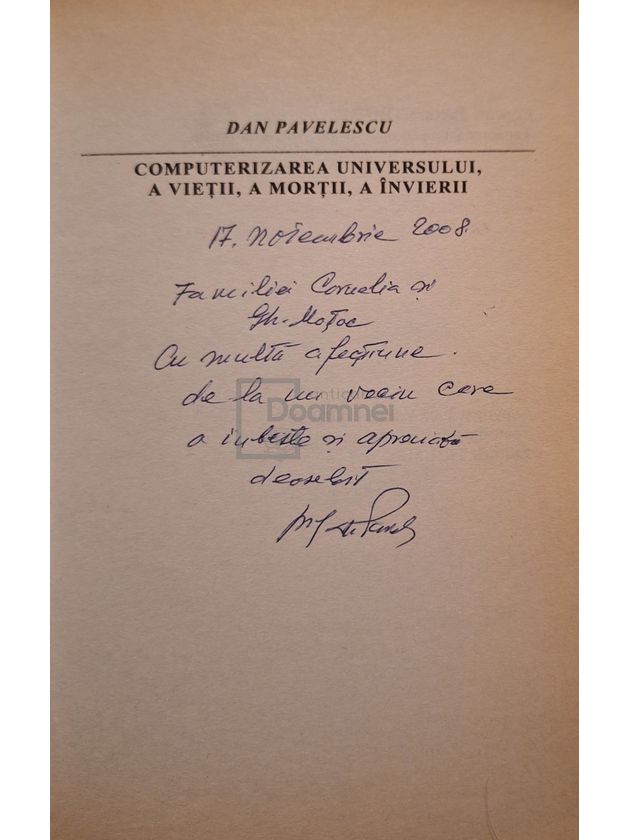 DAN PAVELESCU
COMPUTERIZAREA UNIVERSULUI,
A VIEȚII, A MORȚII, A ÎNVIERII
17. noiembrie 2008
Familiei Cornelia și
Gh. Moțoc
Cu multă afecțiune.
de la un vecin care
a iubește și apreciată
deosebit
Doamnei